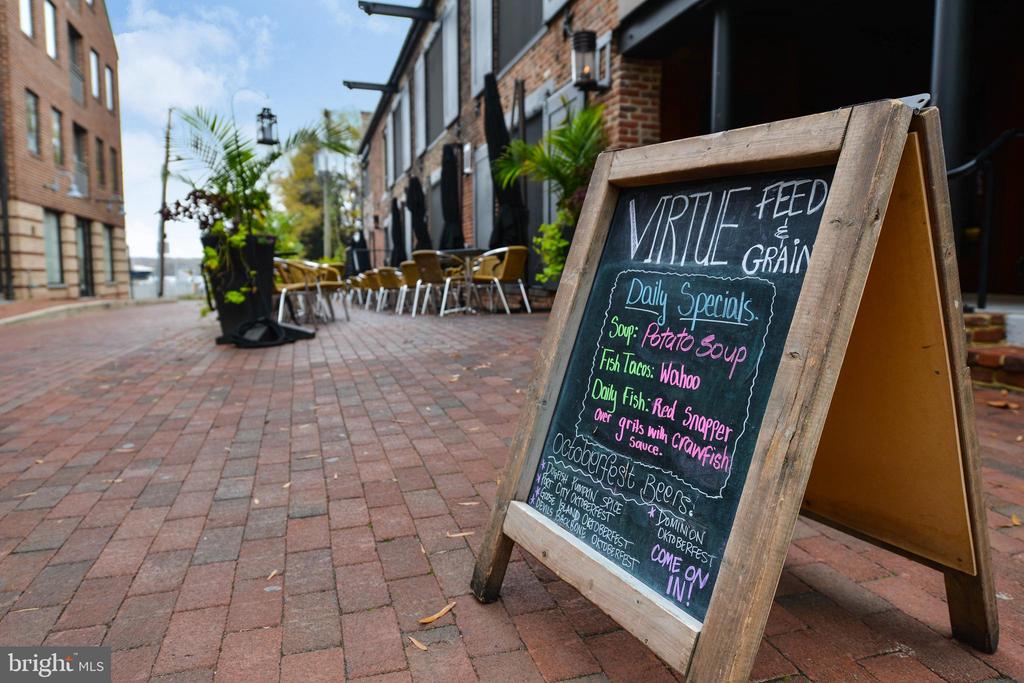 VIRTUE FEED
& GRAIN
Daily Specials
Soup: Potato Soup
Fish Tacos: Wahoo
Daily Fish: Red Snapper
over grits with Crawfish
sauce.
Octoberfest Beers:
* DOGFISH PUMPKIN SPICE
* PORT CITY OKTOBERFEST
* GOOSE ISLAND OKTOBERFEST
* DEVILS BACKBONE OKTOBERFEST
* DOMINION
OKTOBERFEST
COME ON
IN!
bright MLS